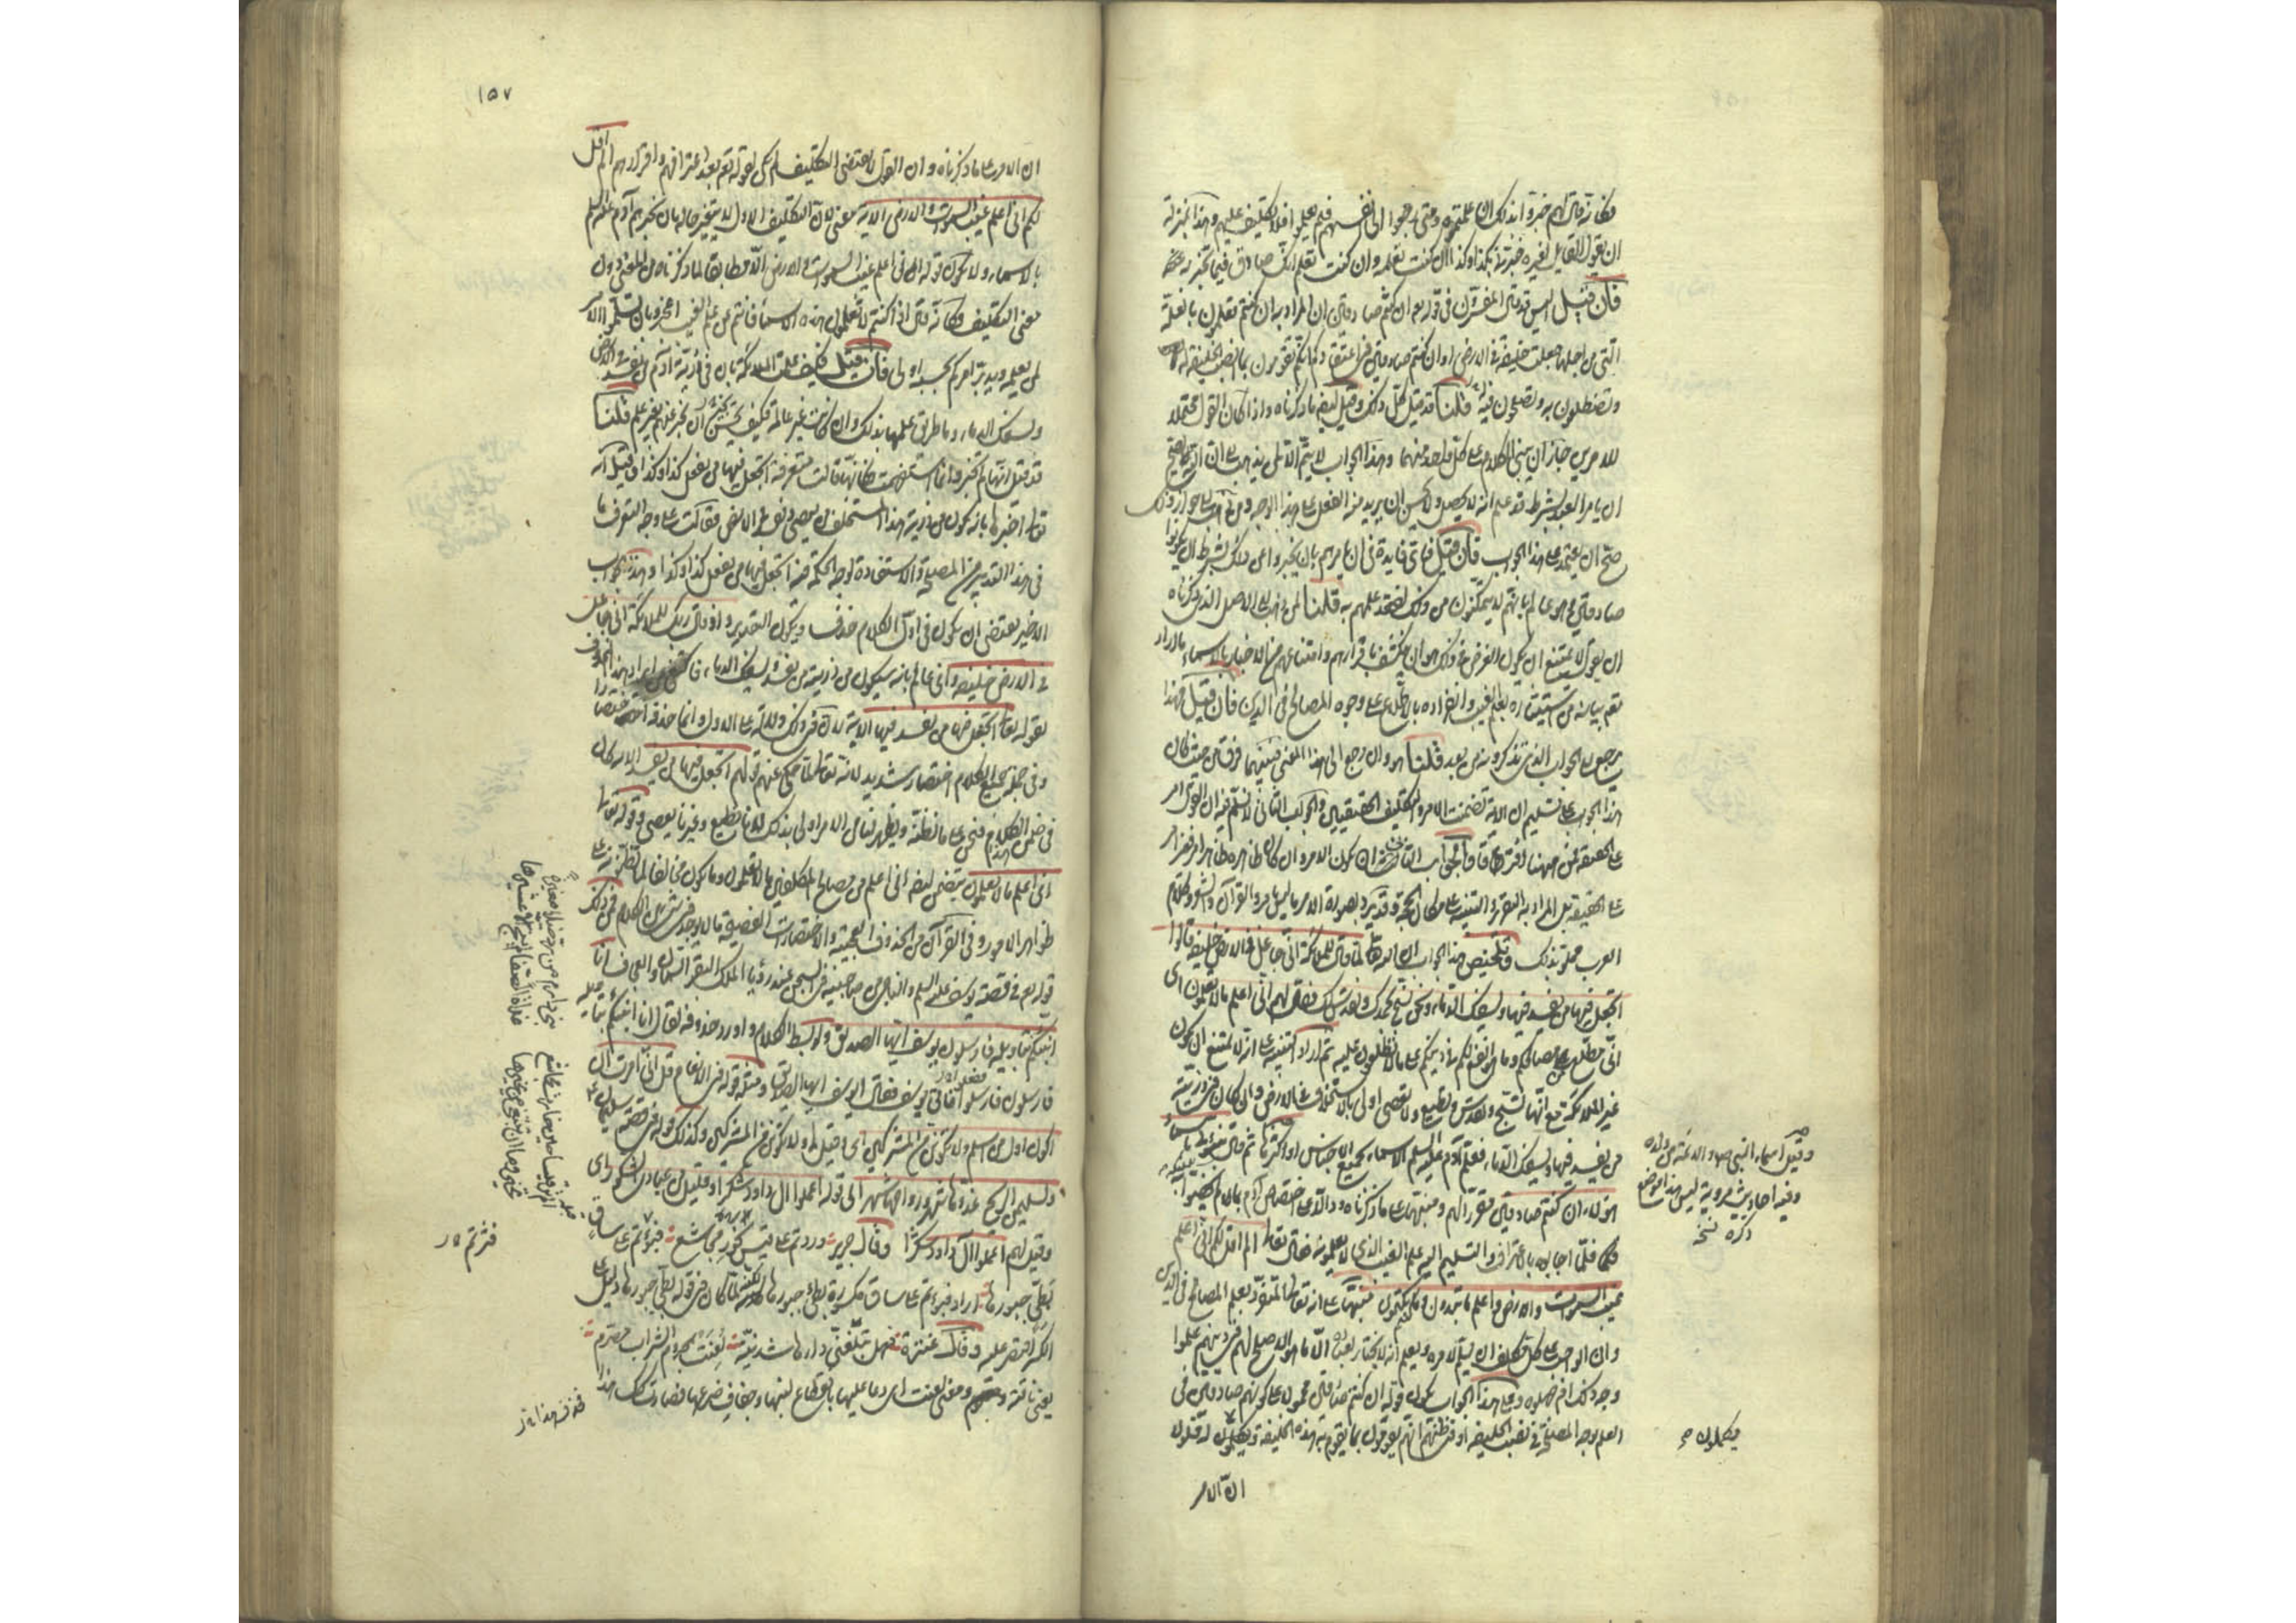 فكانه قال لهم خبروا بذلك ان علمتموه ومتى رجعوا الى نفوسهم فلم يعلموا فلا تكليف عليهم وهذا بمنزلة
ان يقول القايل لغيره خبرني بكذا وكذا ان كنت تعلمه وان كنت تعلم انك صادق فيما تخبر به عنه
فان قيل اليس قد قال المفسرون في قوله تعم ان كنتم صادقين ان المراد به ان كنتم تعلمون بالعلة
التي من اجلها جعلت خليفة في الارض او ان كنتم صادقين في اعتقادكم انكم تقومون بما نصب الخليفة له
وتضطلعون به وتصلحون فيه قلنا قد قيل كل ذلك وقيل ايضا ما ذكرناه واذا كان القول محتملا
للامرين جاز ان يبنى الكلام على كل واحد منهما وهذا الجواب لا يتم الا لمن يذهب الى ان الله تعالى يصح
ان يامر العبد بشرط قد علم انه لا يحصل ولا يحسن ان يريد منه الفعل على هذا الوجه ومن ذهب الى جواز ذلك
صح ان يعتمد على هذا الجواب فان قيل فاي فايدة في ان يامرهم بان يخبروا عن ذلك بشرط ان يكونوا
صادقين وهو عالم بانهم لا يتمكنون من ذلك لفقد علمهم به قلنا لمن ذهب الى الاصل الذي ذكرناه
ان يقول لا يمتنع ان يكون الغرض في ذلك هو ان ينكشف باقرارهم وامتناعهم من الاخبار بالاسماء ما اراد
تعم بيانه من استيثاره بعلم الغيب وانفراده بالاطلاع على وجوه المصالح في الدين فان قيل فهذا
يرجع الى الجواب الذي تذكرونه من بعد قلنا هو وان رجع الى هذا المعنى فبينهما فرق من حيث كان
هذا الجواب على تسليم ان الاية تضمنت الامر والتكليف الحقيقيين والجواب الثاني لا نسلم فيه ان القول امر
على الحقيقة فمن ههنا افترقا والجواب الثاني ان يكون الامر وان كان ظاهره ظاهر امر فغير امر
على الحقيقة بل المراد به التقرير والتنبيه على مكان الحجة وقد يرد بصورة الامر ما ليس بامر والقرآن والشعر وكلام
العرب مملو بذلك وتلخيص هذا الجواب ان الله تعالى لما قال للملائكة اني جاعل في الارض خليفة قالوا
اتجعل فيها من يفسد فيها ويسفك الدماء ونحن نسبح بحمدك ونقدس لك فقال لهم اني اعلم ما لا تعلمون اي
اني مطلع من مصالحكم وما هو انفع لكم في دينكم على ما لا تطلعون عليه ثم اراد التنبيه على انه لا يمتنع ان يكون
غير الملائكة مع انها تسبح وتقدس وتطيع ولا تعصي اولى بالاستخلاف في الارض وان كان في ذريته
من يفسد فيها ويسفك الدماء فعلم آدم عليه السلم الاسماء جميع الاجناس او اكثرها ثم قال انبئوني باسماء
هؤلاء ان كنتم صادقين مقررا لهم ومنبها على ما ذكرناه ودالا على اختصاص آدم بما لم يخصوا به
فلما اجابوا بالاعتراف والتسليم اليه علم الغيب الذي لا يعلمونه فقال تعالى الم اقل لكم اني اعلم
غيب السموات والارض واعلم ما تبدون وما كنتم تكتمون منبها على انه تعالى المتفرد بعلم المصالح في الدين
وان الواجب على كل مكلف ان يسلم لامره ويعلم انه لا يختار لعباده الا ما هو الاصلح لهم في دينهم علموا
وجه ذلك ام جهلوه وعلى هذا الجواب يكون قوله ان كنتم صادقين محمولا على كونهم صادقين في
العلم بوجه المصلحة في نصب الخليفة او في ظنهم انهم يقومون بما يقوم به هذا الخليفة ويكملون له فلولا
ان الامر
وقيل اسماء النبي والائمة من ولده
وفيه احاديث مروية ليس هذا موضع
ذكره نسخ
ويكملون
١٥٧
ان الامر على ما ذكرناه وان القول لا يقتضي التكليف لم يكن لقوله تعم بعد اعترافهم واقرارهم الم اقل
لكم اني اعلم غيب السموات والارض الاية معنى لان التكليف الاول لا يتغير حاله بان يخبرهم آدم عليه السلم
بالاسماء ولا يكون قوله اني اعلم غيب السموات والارض الا مطابقا لما ذكرناه من المعنى دون
معنى التكليف فكانه قال اذا كنتم لا تعلمون هذه الاسماء فانتم عن علم الغيب اعجز وبان تسلموا الامر
لمن يعلمه ويدبر امركم بحسبه اولى فان قيل فكيف علمت الملائكة بان في ذرية آدم من يفسد في الارض
ويسفك الدماء وما طريق علمها بذلك وان كانت غير عالمة فكيف يحسن ان تخبر عنهم بغير علم قلنا
قد قيل انها لم تخبر وانما استفهمت فكانها قالت متعرفة اتجعل فيها من يفعل كذا وكذا وقيل ان الله
تعالى اخبرها بانه يكون من ذرية هذا المستخلف من يعصي ويفسد في الارض فقالت على وجه التعرف لما
في هذا التدبير من المصلحة والاستفادة لوجه الحكمة فيه اتجعل فيها من يفعل كذا وكذا وهذا الجواب
الاخير يقتضي ان يكون في اول الكلام حذف ويكون التقدير واذ قال ربك للملائكة اني جاعل
في الارض خليفة واني عالم بانه سيكون من ذريته من يفسد ويسفك الدماء فاكتفى عن ايراد هذا المحذوف
بقوله تعالى اتجعل فيها من يفسد فيها الاية لان في ذلك دلالة على الاول وانما حذفه اختصارا
وفي جملة جميع الكلام اختصار شديد لانه تعالى لما حكى عنهم قولهم اتجعل فيها من يفسد الاية كان
في ضمن هذا الكلام فنحن على ما نظنه ويظهر لنا من الامر اولى بذلك لانا نطيع وغيرنا يعصي وقوله تعالى
اني اعلم ما لا تعلمون يتضمن ايضا اني اعلم من مصالح المكلفين ما لا تعلمون وما يكون مخالفا لما تظنونه على
ظواهر الامور وفي القرآن من الحذوف العجيبة والاختصارات الفصيحة ما لا يوجد في شيء من الكلام فمن ذلك
قوله تعم في قصة يوسف عليه السلم والناجي من صاحبيه في السجن عند رؤيا الملك البقر السمان والعجاف انا
انبئكم بتاويله فارسلون يوسف ايها الصديق ولو بسط الكلام واورد محذوفه لقال انا انبئكم بتاويله
فارسلون فارسلوا فاتى يوسف فقال له يوسف ايها الصديق ومثله قوله في الانعام قل اني امرت ان
اكون اول من اسلم ولا تكونن من المشركين اي وقيل لي ولا تكونن من المشركين وكذلك قوله في قصة سليمن
ولسليمن الريح غدوها شهر ورواحها شهر الى قوله اعملوا آل داود شكرا وقليل من عبادي الشكور اي
وقيل لهم اعملوا آل داود شكرا وقال جرير وردتم على قيس بخور مجاشع فبؤتم على ساق
بطيء جبورها اراد فبؤتم على ساق مكسورة بطيء جبورها كانه لما كان في قوله بطيء جبورها دليل على
الكسر اقتصر عليه وقال عنترة هل تبلغني دارها شدنية لعنت بمحروم الشراب مصرم
يعني ناقته ومعنى لعنت اي دعا عليها بانقطاع لبنها وجفاف ضرعها فصارت كذلك